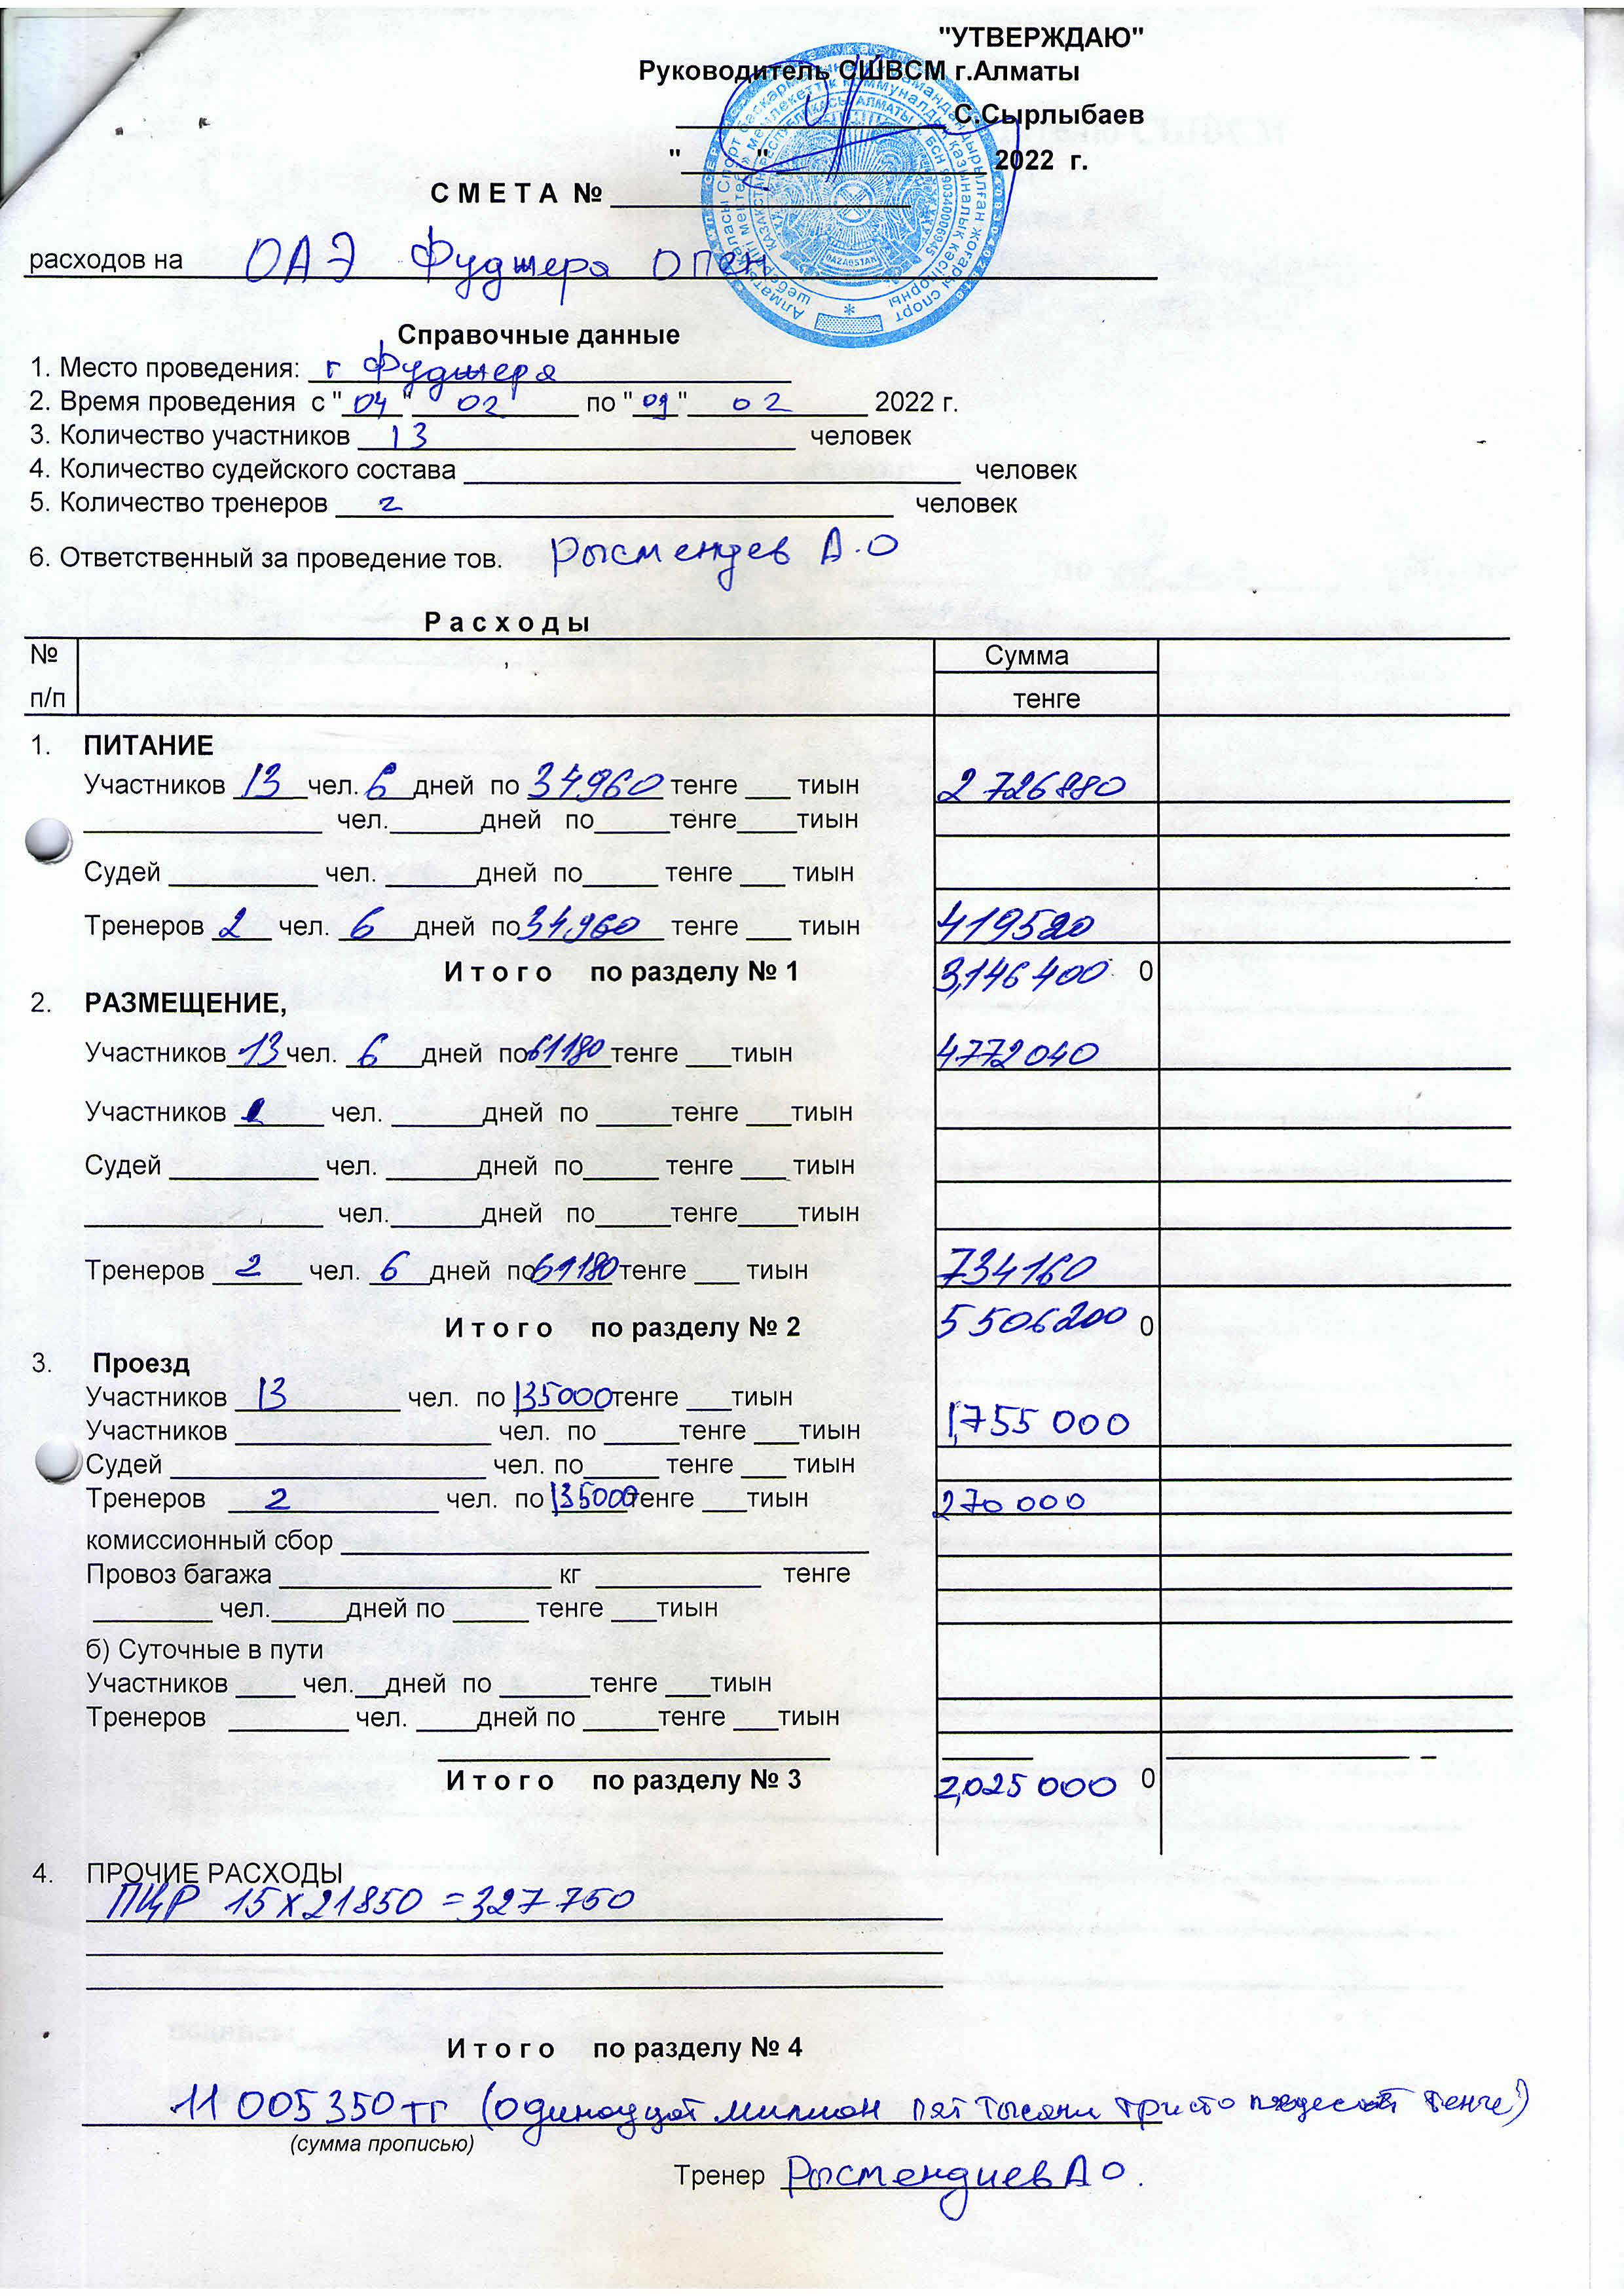 "УТВЕРЖДАЮ"
Руководитель СШВСМ г.Алматы
____________ С.Сырлыбаев
"____" ____________ 2022 г.
С М Е Т А № ____________
расходов на ОАЭ Фуджера ОПЕН
Справочные данные
1. Место проведения: г Фуджера
2. Время проведения с " 04 " 02 по " 09 " 02 2022 г.
3. Количество участников 13 человек
4. Количество судейского состава ____________ человек
5. Количество тренеров 2 человек
6. Ответственный за проведение тов. Рысмендев А.О
Р а с х о д ы
№ п/п Сумма
тенге
1. ПИТАНИЕ
Участников 13 чел. 6 дней по 34960 тенге ___ тиын 2 726880
____________ чел.______дней по_____тенге____тиын
Судей __________ чел. ______дней по_____ тенге ___ тиын
Тренеров 2 чел. 6 дней по 34960 тенге ___ тиын 419520
И т о г о по разделу № 1 3,146 400 0
2. РАЗМЕЩЕНИЕ,
Участников 13 чел. 6 дней по 61180 тенге ___тиын 4772040
Участников ______ чел. ______дней по _____тенге ___тиын
Судей __________ чел. ______дней по_____ тенге ___тиын
____________ чел.______дней по_____тенге____тиын
Тренеров 2 чел. 6 дней по 61180 тенге ___ тиын 734160
И т о г о по разделу № 2 5 506200 0
3. Проезд
Участников 13 чел. по 135000 тенге ___тиын 1,755 000
Участников ____________ чел. по _____тенге ___тиын
Судей ____________ чел. по_____ тенге ___ тиын
Тренеров 2 чел. по 135000 тенге ___тиын 270 000
комиссионный сбор ____________
Провоз багажа ____________ кг ____________ тенге
________ чел._____дней по _____ тенге ___тиын
б) Суточные в пути
Участников ____ чел.__дней по ______тенге ___тиын
Тренеров __________ чел. ____дней по _____тенге ___тиын
И т о г о по разделу № 3 2,025 000 0
4. ПРОЧИЕ РАСХОДЫ
ПЦР 15 х 21850 = 327 750
И т о г о по разделу № 4
11 005 350 тг (одиноуцот милион пят тысячи тристо
(сумма прописью)
Тренер Рысмендиев А О.